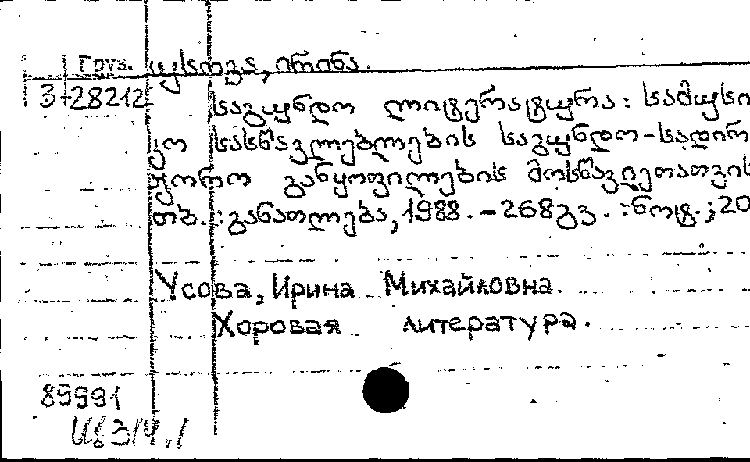 Груз. უსოვა, ირინა.
3-28212 საგუნდო ლიტერატურა: სამუსი
კო სასწავლებლების საგუნდო-სადირ
ჟორო განყოფილების მოსწავლეთათვის
თბ.: განათლება, 1988. - 268გვ. : ნოტ.; 20
Усова, Ирина Михайловна.
Хоровая литература.
89991